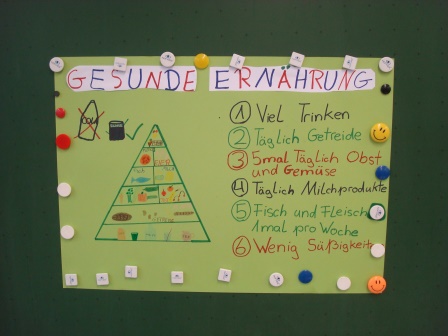 GESUNDE ERNÄHRUNG
① Viel Trinken
② Täglich Getreide
③ 5mal Täglich Obst
und Gemüse
④ Täglich Milchprodukte
⑤ Fisch und Fleisch
1mal pro Woche
⑥ Wenig Süßigkeit